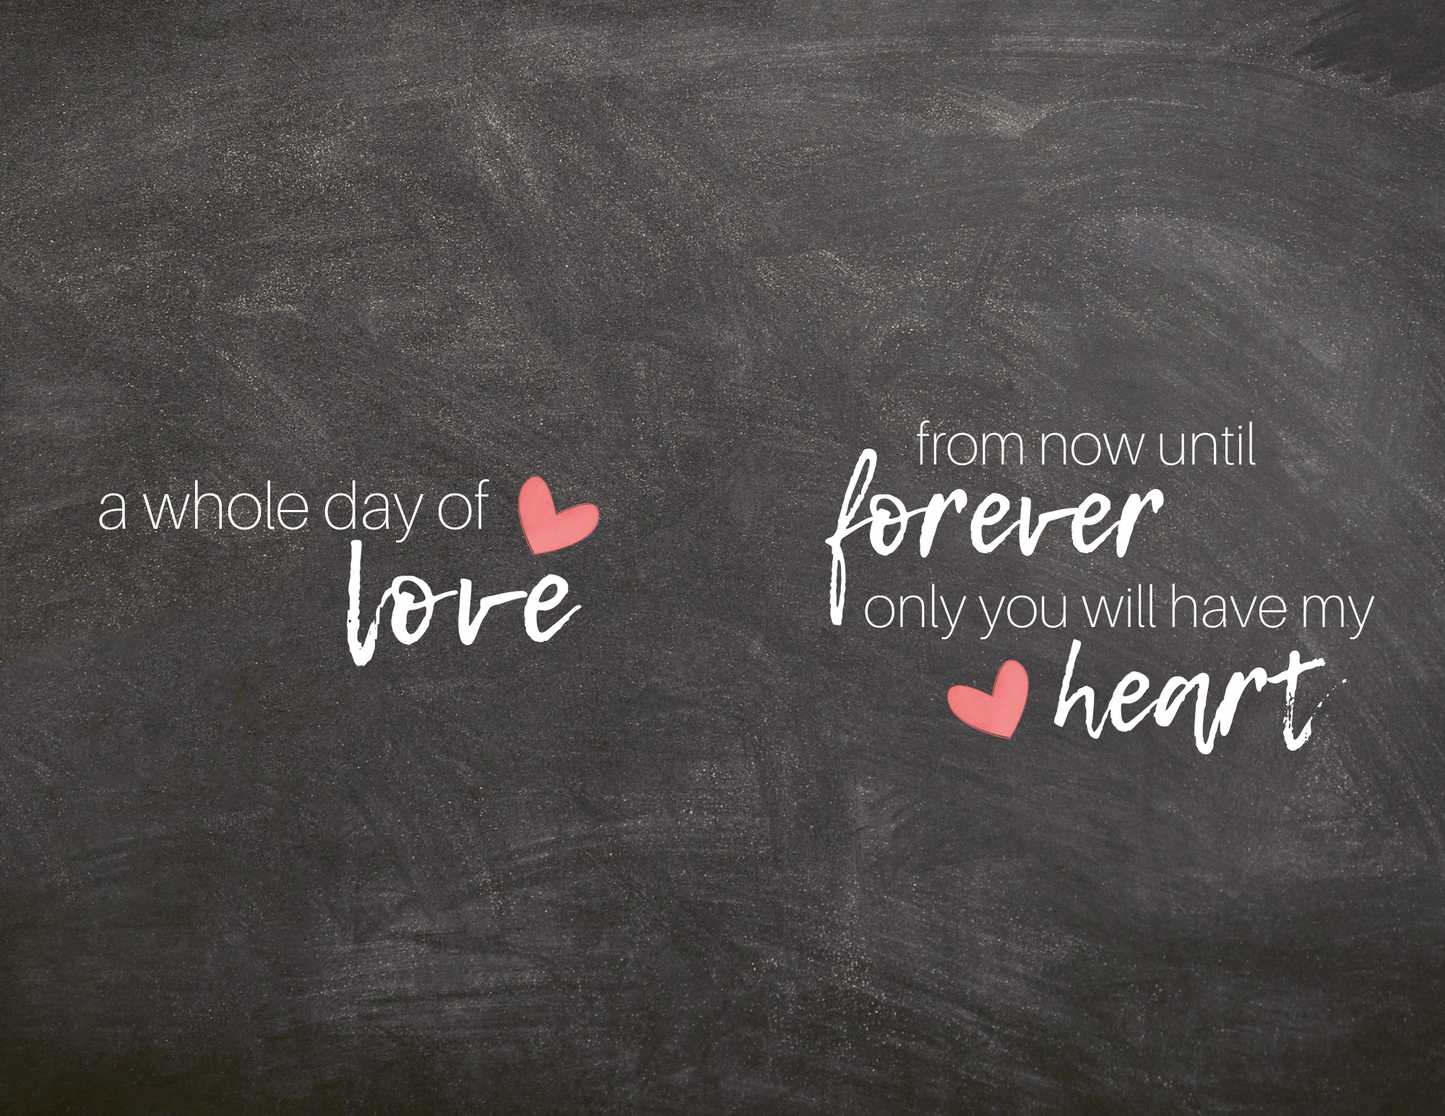 a whole day of
love
from now until
forever
only you will have my
heart